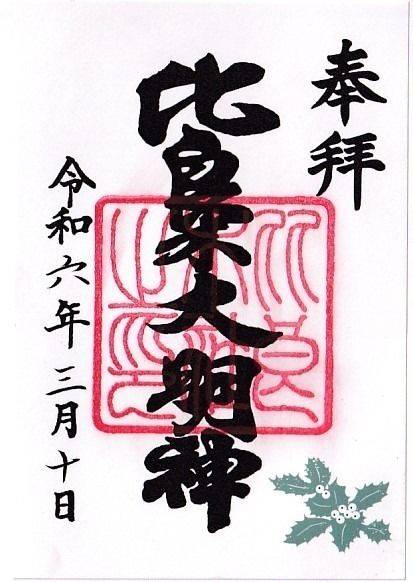 奉拝
比良木大明神
令和六年三月十日